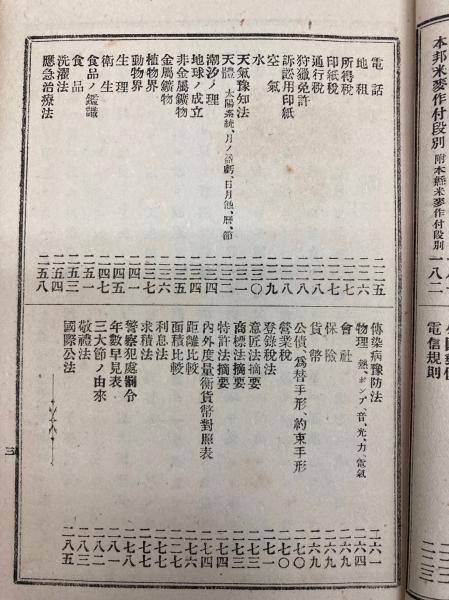 本邦米麥作付段別 附本縣米麥作付段別 一八二
電信規則
電話 二二五
地租 二二六
所得稅 二二七
印紙稅 二二七
通行稅 二二八
狩獵免許 二二八
訴訟用印紙 二二八
空氣 二二九
水 二三〇
天氣豫知法 二三一
天體 太陽系統、月ノ盈虧、日月蝕、曆、節 二三二
潮汐ノ理 二三四
地球ノ成立 二三四
非金屬鑛物 二三五
金屬鑛物 二三六
植物界 二三七
動物界 二四一
生理 二四五
衛生 二四七
食品ノ鑑識 二五一
食品 二五三
洗濯法 二五四
應急治療法 二五八
傳染病豫防法 二六一
物理 熱、ポンプ、音、光、力、電氣 二六四
會社 二六九
保險 二六九
貨幣 二六九
公債、爲替手形、約束手形 二七〇
營業稅 二七〇
登錄稅法 二七一
意匠法摘要 二七三
商標法摘要 二七三
特許法摘要 二七四
內外度量衡貨幣對照表 二七四
距離比較 二七六
面積比較 二七七
利息法 二七七
求積法 二七七
警察犯處罰令 二七八
年數早見表 二八一
三大節ノ由來 二八二
敬禮法 二八三
國際公法 二八五
三